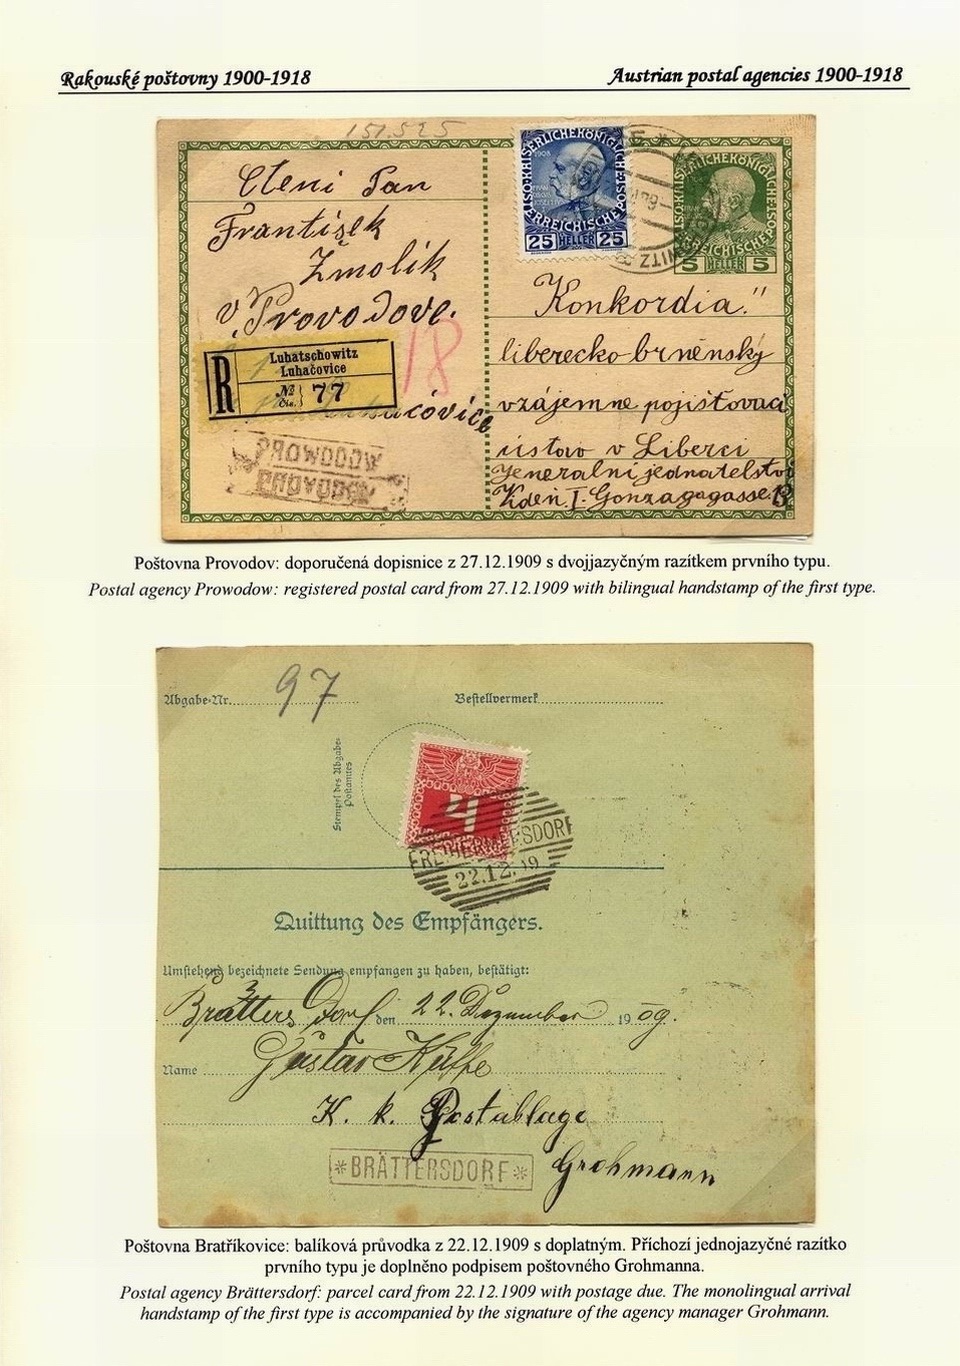 Rakouské poštovny 1900-1918
Austrian postal agencies 1900-1918
151.525
Cteni Pan
František
Žmolik
v Provodove.
18
R
Luhatschowitz
Luhačovice
№
Čís.
77
PROWODOW
PROVODOV
1908
KAISERLICHEKÖNIGLICHE
ÖSTERREICHISCHE POST
25 HELLER 25
5 HELLER 5
"Konkordia"
liberecko brněnský
vzájemne pojišťovací
ústav v Liberci
Jeneralni jednatelstvi
Vídeň. I. Gonzagagasse 13
Poštovna Provodov: doporučená dopisnice z 27.12.1909 s dvojjazyčným razítkem prvního typu.
Postal agency Prowodow: registered postal card from 27.12.1909 with bilingual handstamp of the first type.
Abgabe-Nr.
97
Bestellvermerk
Stempel des Abgabe-
Postamtes
4
FREIHERMERSDORF
22.12.09
Quittung des Empfängers.
Umstehend bezeichnete Sendung empfangen zu haben, bestätigt:
Brättersdorf den 22. Dezember 1909.
Name Gustav
K. k. Postablage
*BRÄTTERSDORF*
Grohmann
Poštovna Bratříkovice: balíková průvodka z 22.12.1909 s doplatným. Příchozí jednojazyčné razítko
prvního typu je doplněno podpisem poštovného Grohmanna.
Postal agency Brättersdorf: parcel card from 22.12.1909 with postage due. The monolingual arrival
handstamp of the first type is accompanied by the signature of the agency manager Grohmann.